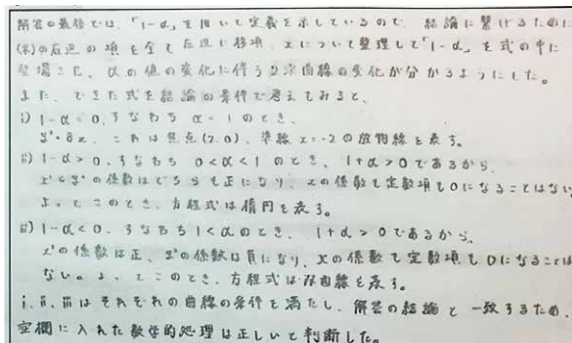 解答の最後では、「1-α」を用いて定義を示しているので、結論に繋げるために
(※)の右辺の項を全て左辺に移項、xについて整理して「1-α」を式の中に
登場させ、αの値の変化に伴う2次曲線の変化が分かるようにした。
また、できた式を結論の条件で考えてみると、
i) 1-α=0、すなわち α=1 のとき、
y²=8x、これは焦点(2,0)、準線 x=-2 の放物線を表す。
ii) 1-α>0、すなわち 0<α<1 のとき、1+α>0であるから、
x²とy²の係数はどちらも正になり、xの係数も定数項も0になることはない
よってこのとき、方程式は楕円を表す。
iii) 1-α<0、すなわち 1<α のとき、1+α>0であるから、
x²の係数は正、y²の係数は負になり、xの係数も定数項も0になることは
ない。よってこのとき、方程式は双曲線を表す。
i、ii、iiiはそれぞれの曲線の条件を満たし、解答の結論と一致するため、
空欄に入れた数学的処理は正しいと判断した。